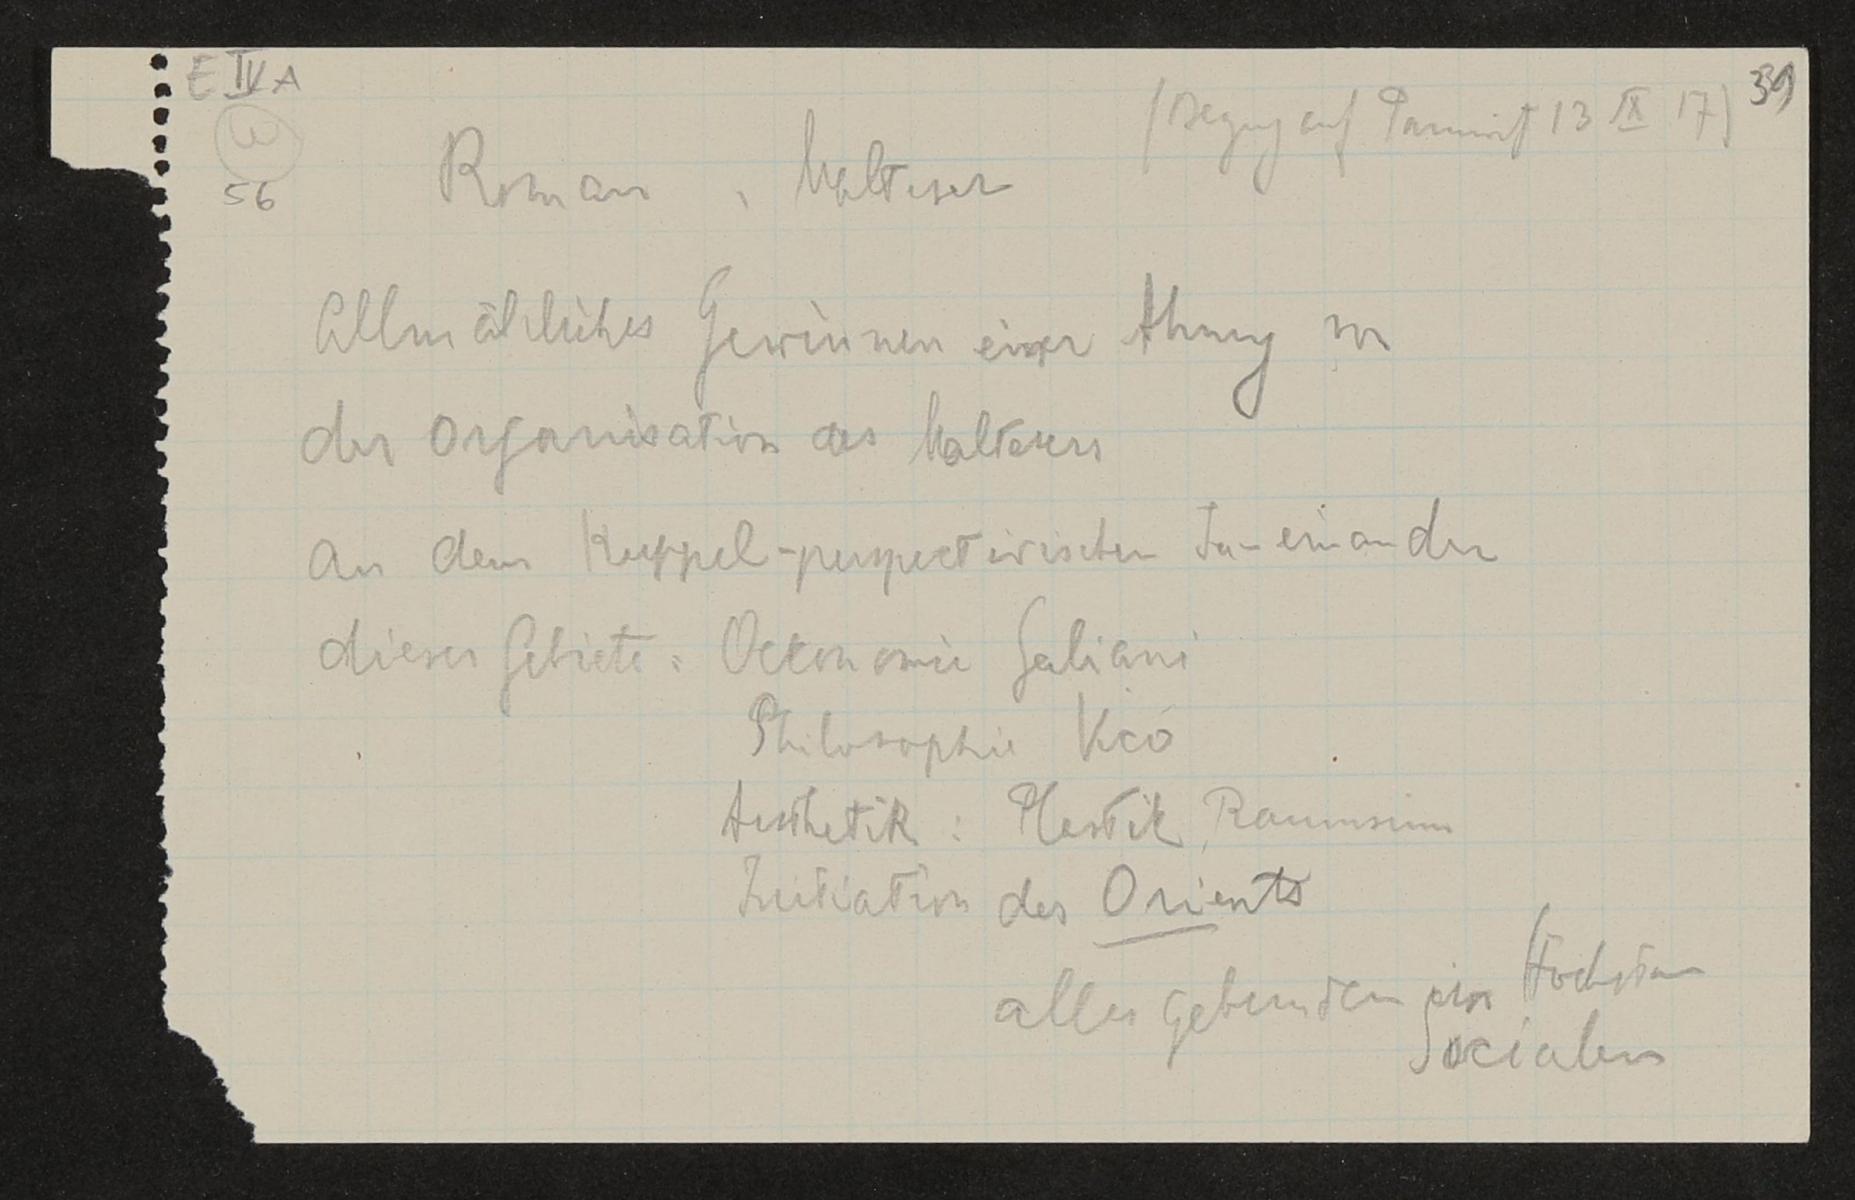 E IV A
39
(Bezug auf Pannwitz 13 IX 17)
56
Roman, Malteser
Allmähliches Gewinnen einer Ahnung von
der Organisation des Maltesers
an dem Kuppel-perspectivischen In-einander
dieser Gebiete: Oekonomie Galiani
Philosophie Vico
Aesthetik: Plastik, Raumsinn
Initiation des Orients
alles gebunden im Höchsten
Socialen